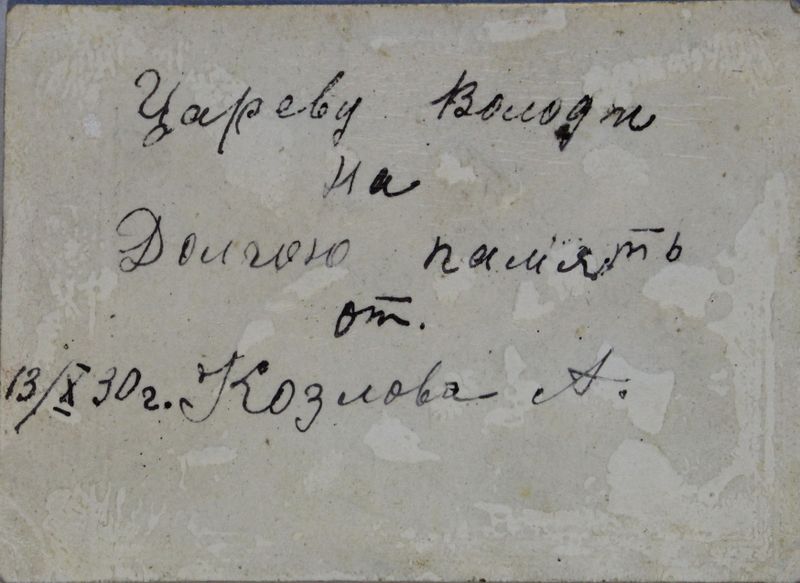 Цареву Володи
на
Долгою память
от.
13/X 30г. Козлова А.